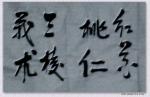 红花
桃仁
三棱
莪术